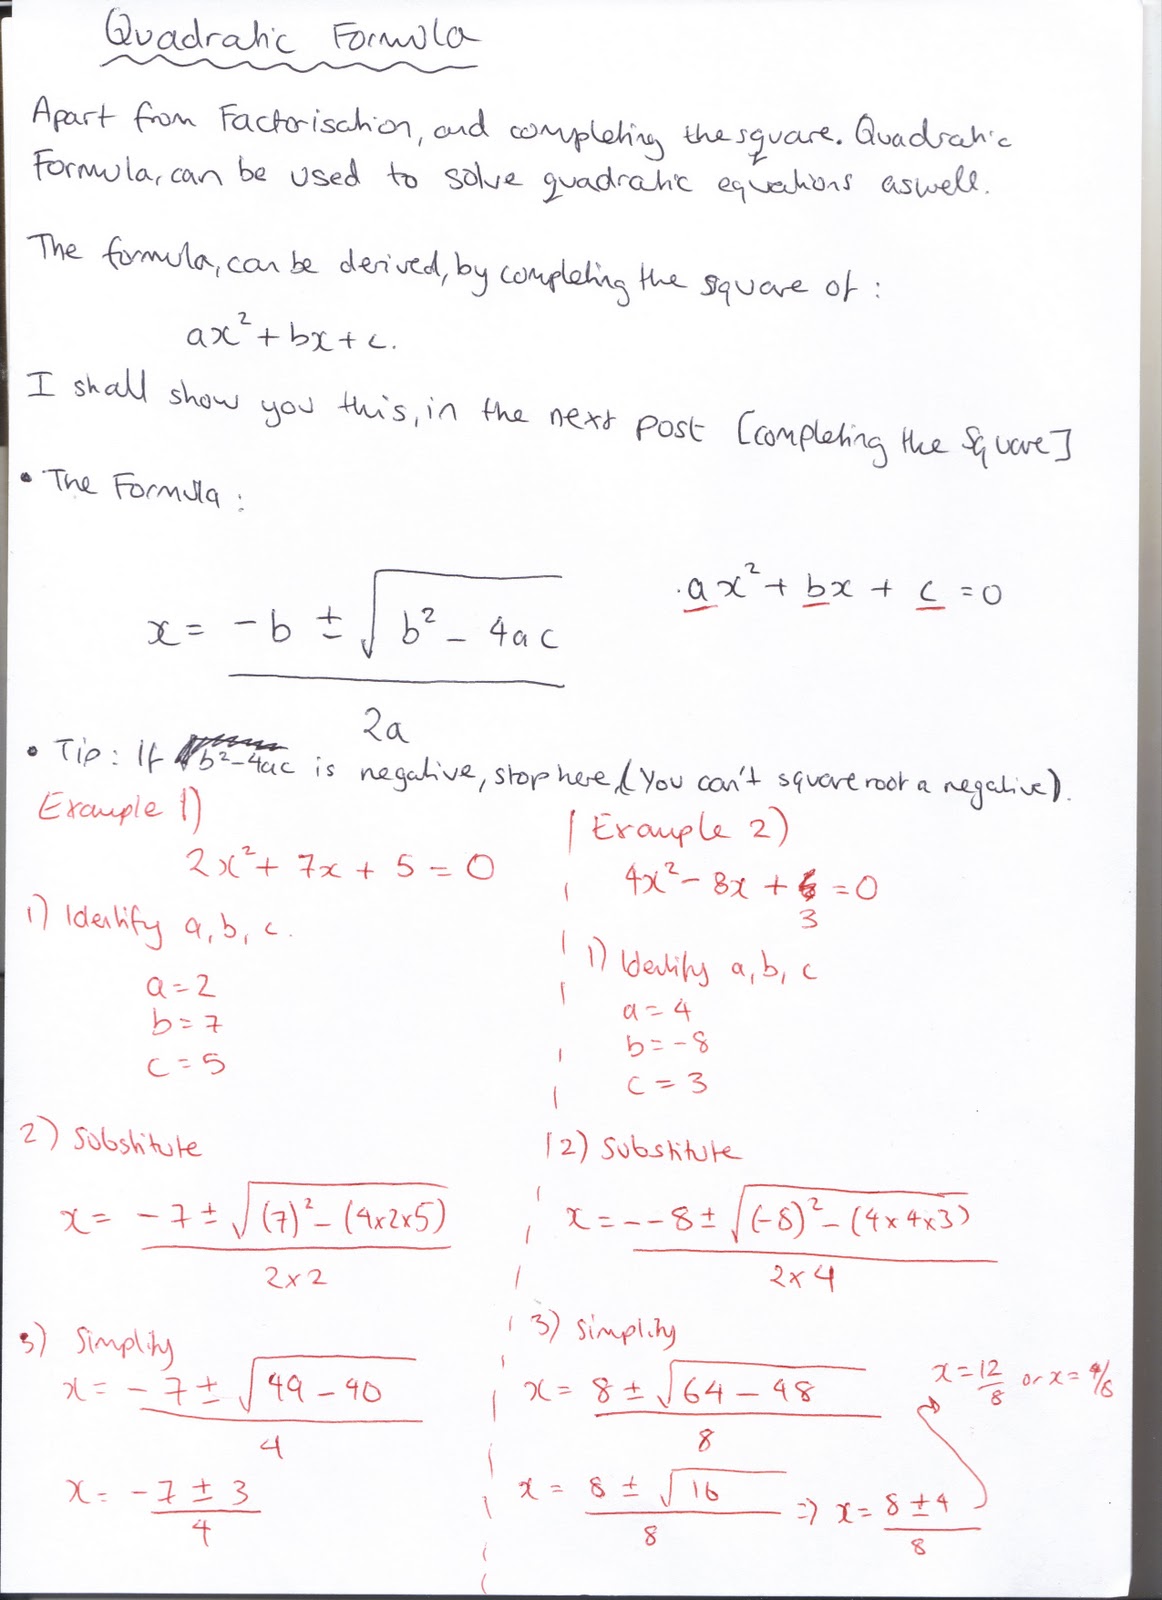 Quadratic Formula
Apart from Factorisation, and completing the square. Quadratic
Formula, can be used to solve quadratic equations aswell.
The formula, can be derived, by completing the square of :
ax² + bx + c.
I shall show you this, in the next post [completing the square]
• The Formula :
x = (-b ± √(b² - 4ac)) / 2a
ax² + bx + c = 0
• Tip : If b² - 4ac is negative, stop here, (You can't square root a negative).
Example 1)
2x² + 7x + 5 = 0
1) Identify a, b, c.
a = 2
b = 7
c = 5
2) Substitute
x = (-7 ± √((7)² - (4x2x5))) / 2x2
3) Simplify
x = (-7 ± √(49 - 40)) / 4
x = (-7 ± 3) / 4
Example 2)
4x² - 8x + 3 = 0
1) Identify a, b, c
a = 4
b = -8
c = 3
2) Substitute
x = (--8 ± √((-8)² - (4x4x3))) / 2x4
3) Simplify
x = (8 ± √(64 - 48)) / 8
x = (8 ± √16) / 8 => x = (8 ± 4) / 8
x = 12/8 or x = 4/8